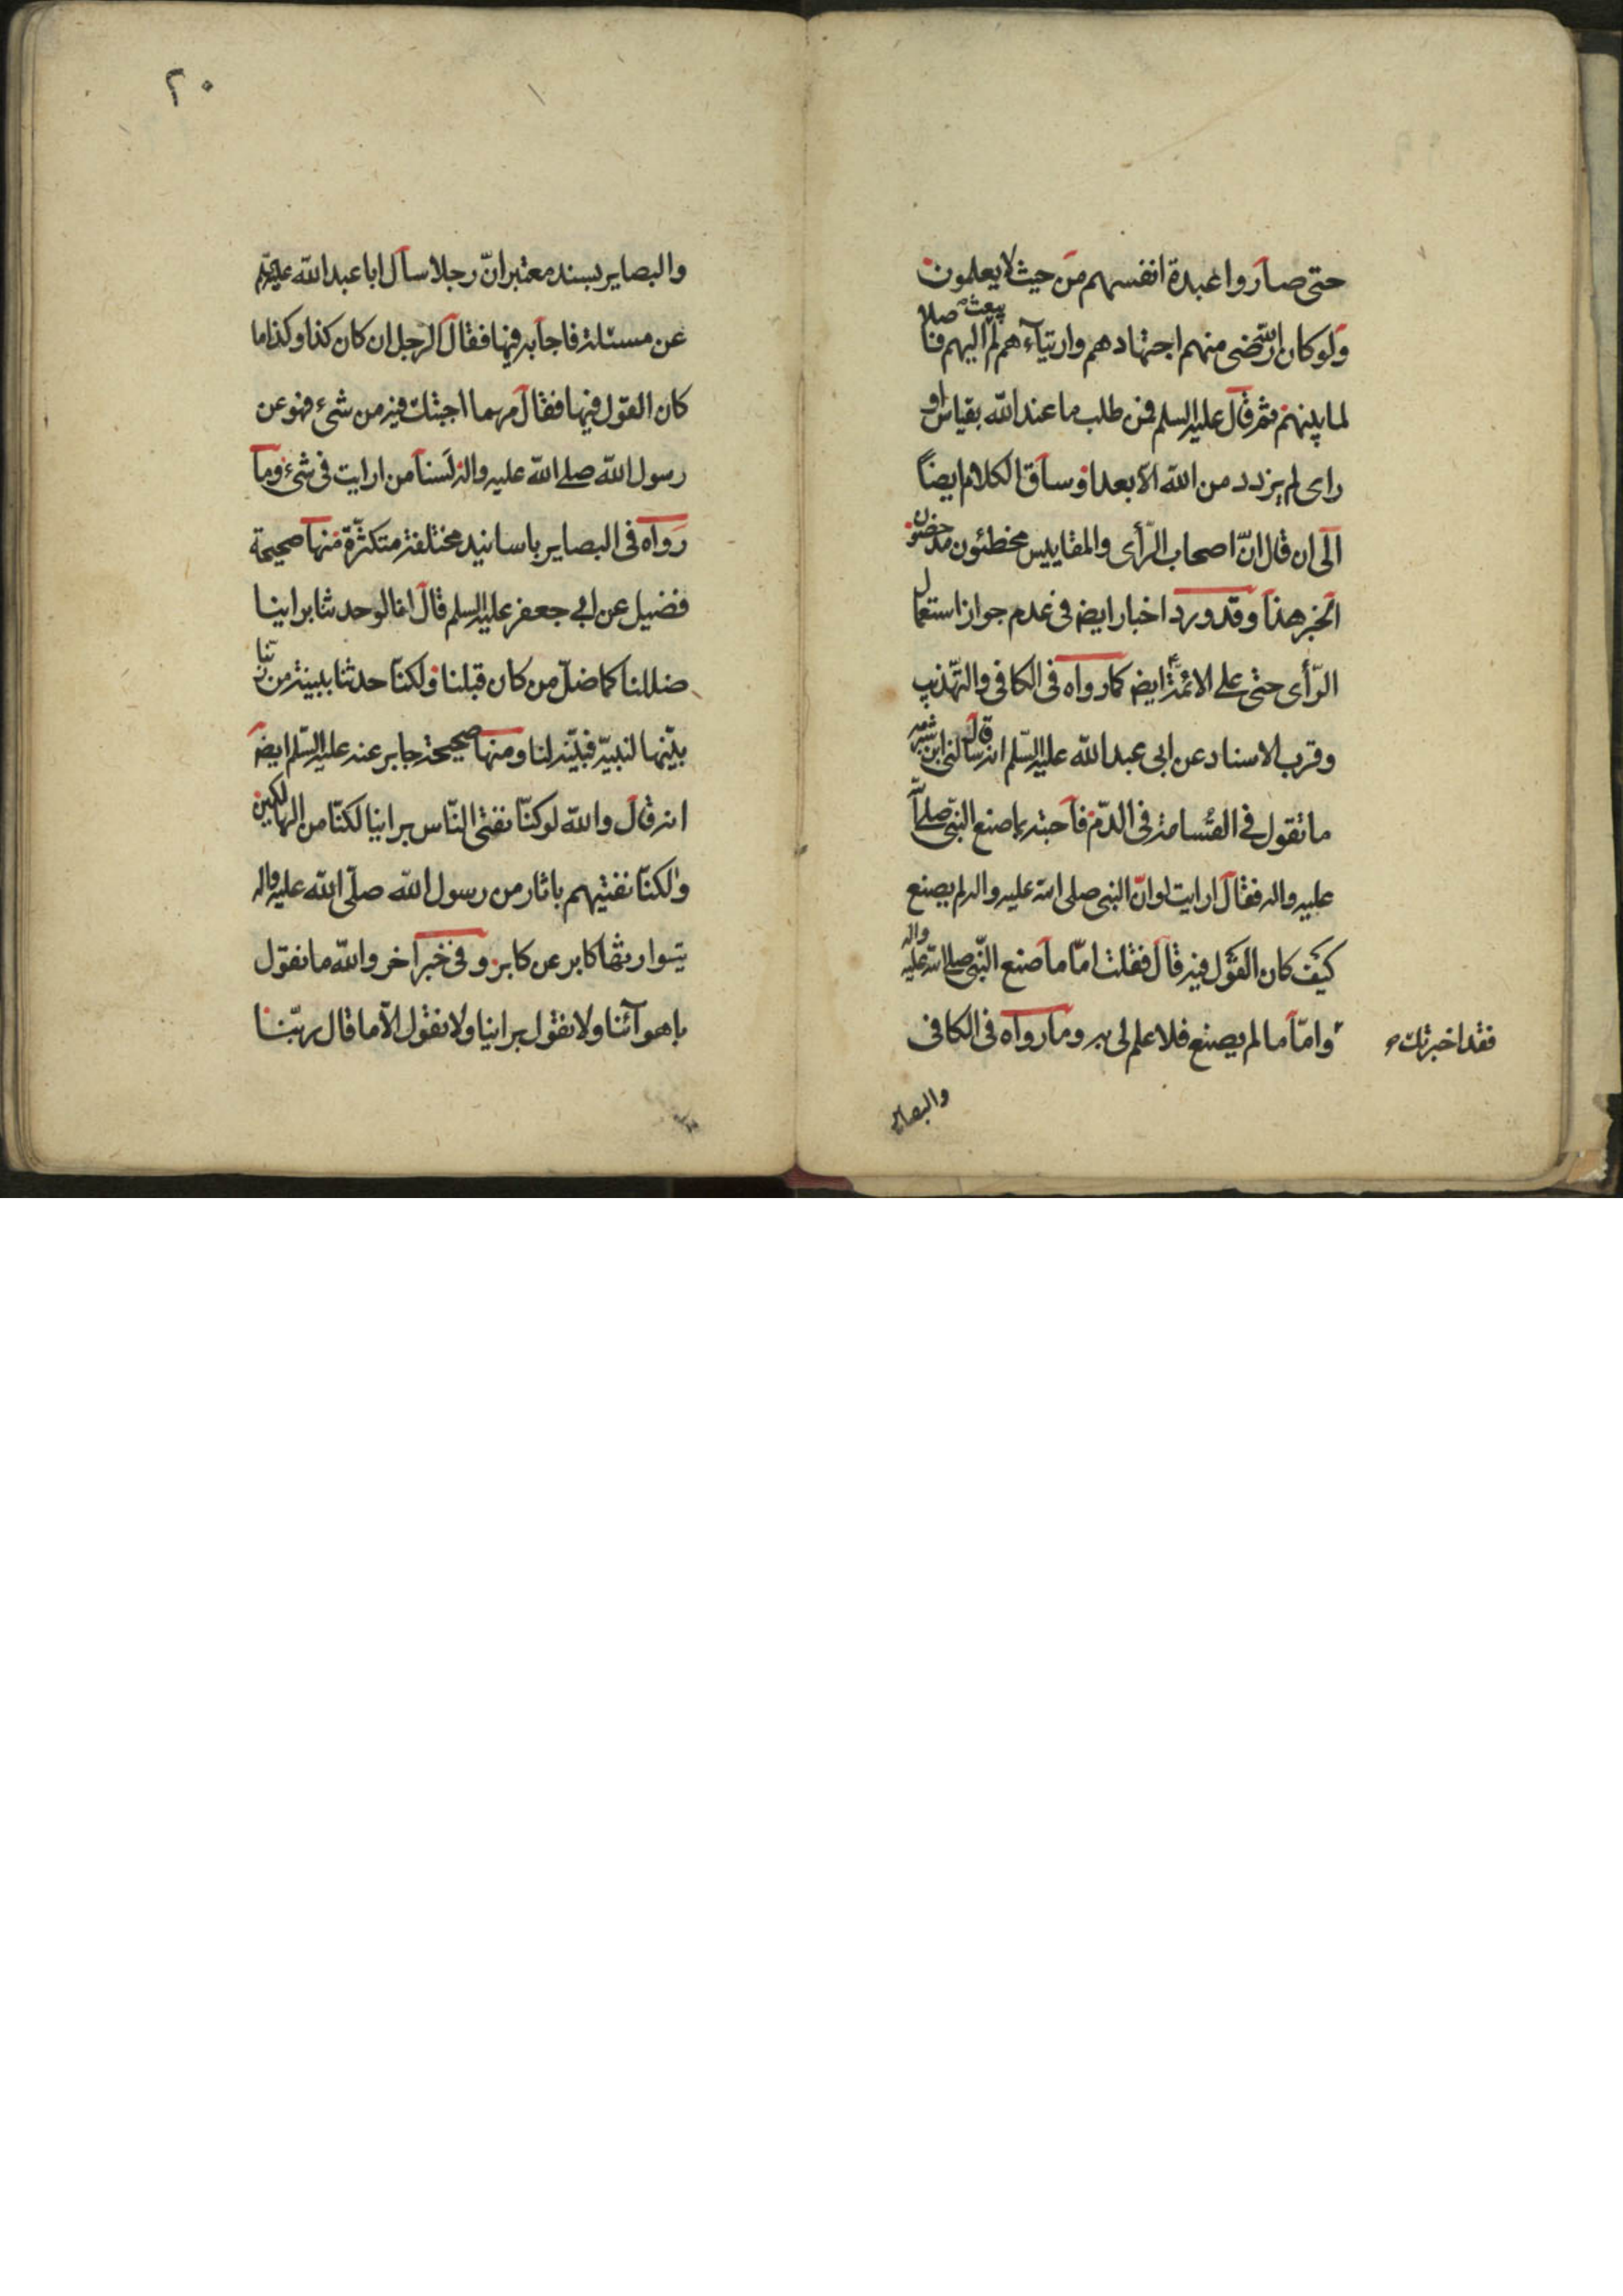 حتى صاروا عبدة انفسهم من حيث لا يعلمون
ولو كان الله رضى منهم اجتهادهم وارتيآءهم لم يبعث اليهم فاصلا
لما بينهم ثم قال عليه السلم فمن طلب ما عند الله بقياس او
راى لم يزدد من الله الا بعدا وساق الكلام ايضاً
الى ان قال انّ اصحاب الرّأى والمقاييس مخطئون مدحضون
الخبر هذا وقد ورد اخبار ايض فى عدم جواز استعمال
الرّأى حتى على الائمّة ايض كما رواه فى الكافى والتهذيب
وقرب الاسناد عن ابى عبد الله عليه السّلم انه قال سألنى ابن شبرمه
ما تقول فى القسامة فى الدّم فاجبته بما صنع النبى صلى الله
عليه واله فقال ارايت لو انّ النبى صلى الله عليه واله لم يصنع
كيف كان القول فيه قال فقلت امّا ما صنع النّبى صلى الله عليه واله
فقد اخبرتك
وامّا ما لم يصنع فلا علم لى به وما رواه فى الكافى
والبصاير
٢٠
والبصاير بسند معتبر انّ رجلا سأل ابا عبد الله عليه
عن مسئلة فاجابه فيها فقال الرجل ان كان كذا وكذا ما
كان القول فيها فقال مهما اجبتك فيه من شىء فهو عن
رسول الله صلى الله عليه واله لسنا من ارايت فى شىء وما
رواه فى البصاير باسانيد مختلفة متكثّرة منها صحيحة
فضيل عن ابى جعفر عليه السلم قال انا لو حدثنا براينا
ضللنا كما ضلّ من كان قبلنا ولكنّا حدثنا ببينة من ربّنا
بيّنها لنبيّه فبيّنه لنا ومنها صحيحة جابر عنه عليه السّلم ايض
انه قال والله لو كنّا نفتى النّاس براينا لكنّا من الهالكين
ولكنّا نفتيهم باثار من رسول الله صلّى الله عليه واله
يتوارثها كابر عن كابر وفى خبر اخر والله ما نقول
باهوآئنا ولا نقول براينا ولا نقول الّا ما قال ربّنا